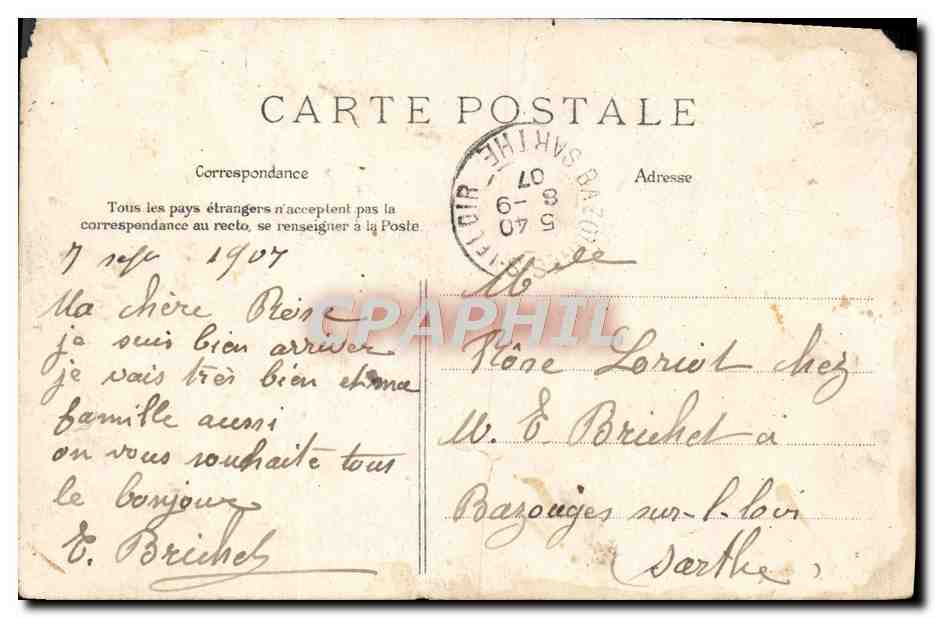 CARTE POSTALE
Correspondance
Tous les pays étrangers n'acceptent pas la
correspondance au recto, se renseigner à la Poste
7 sept 1907
Ma chère Rose
je suis bien arriver
je vais très bien et ma
famille aussi
on vous souhaite tous
le bonjour
E. Brichet
Adresse
BAZOUGES-S-LE LOIR
SARTHE
5 40
8 -9
07
Mlle
Rôse Loriot chez
M. E. Brichet à
Bazouges sur-l-loir
Sarthe
CPAPHIL